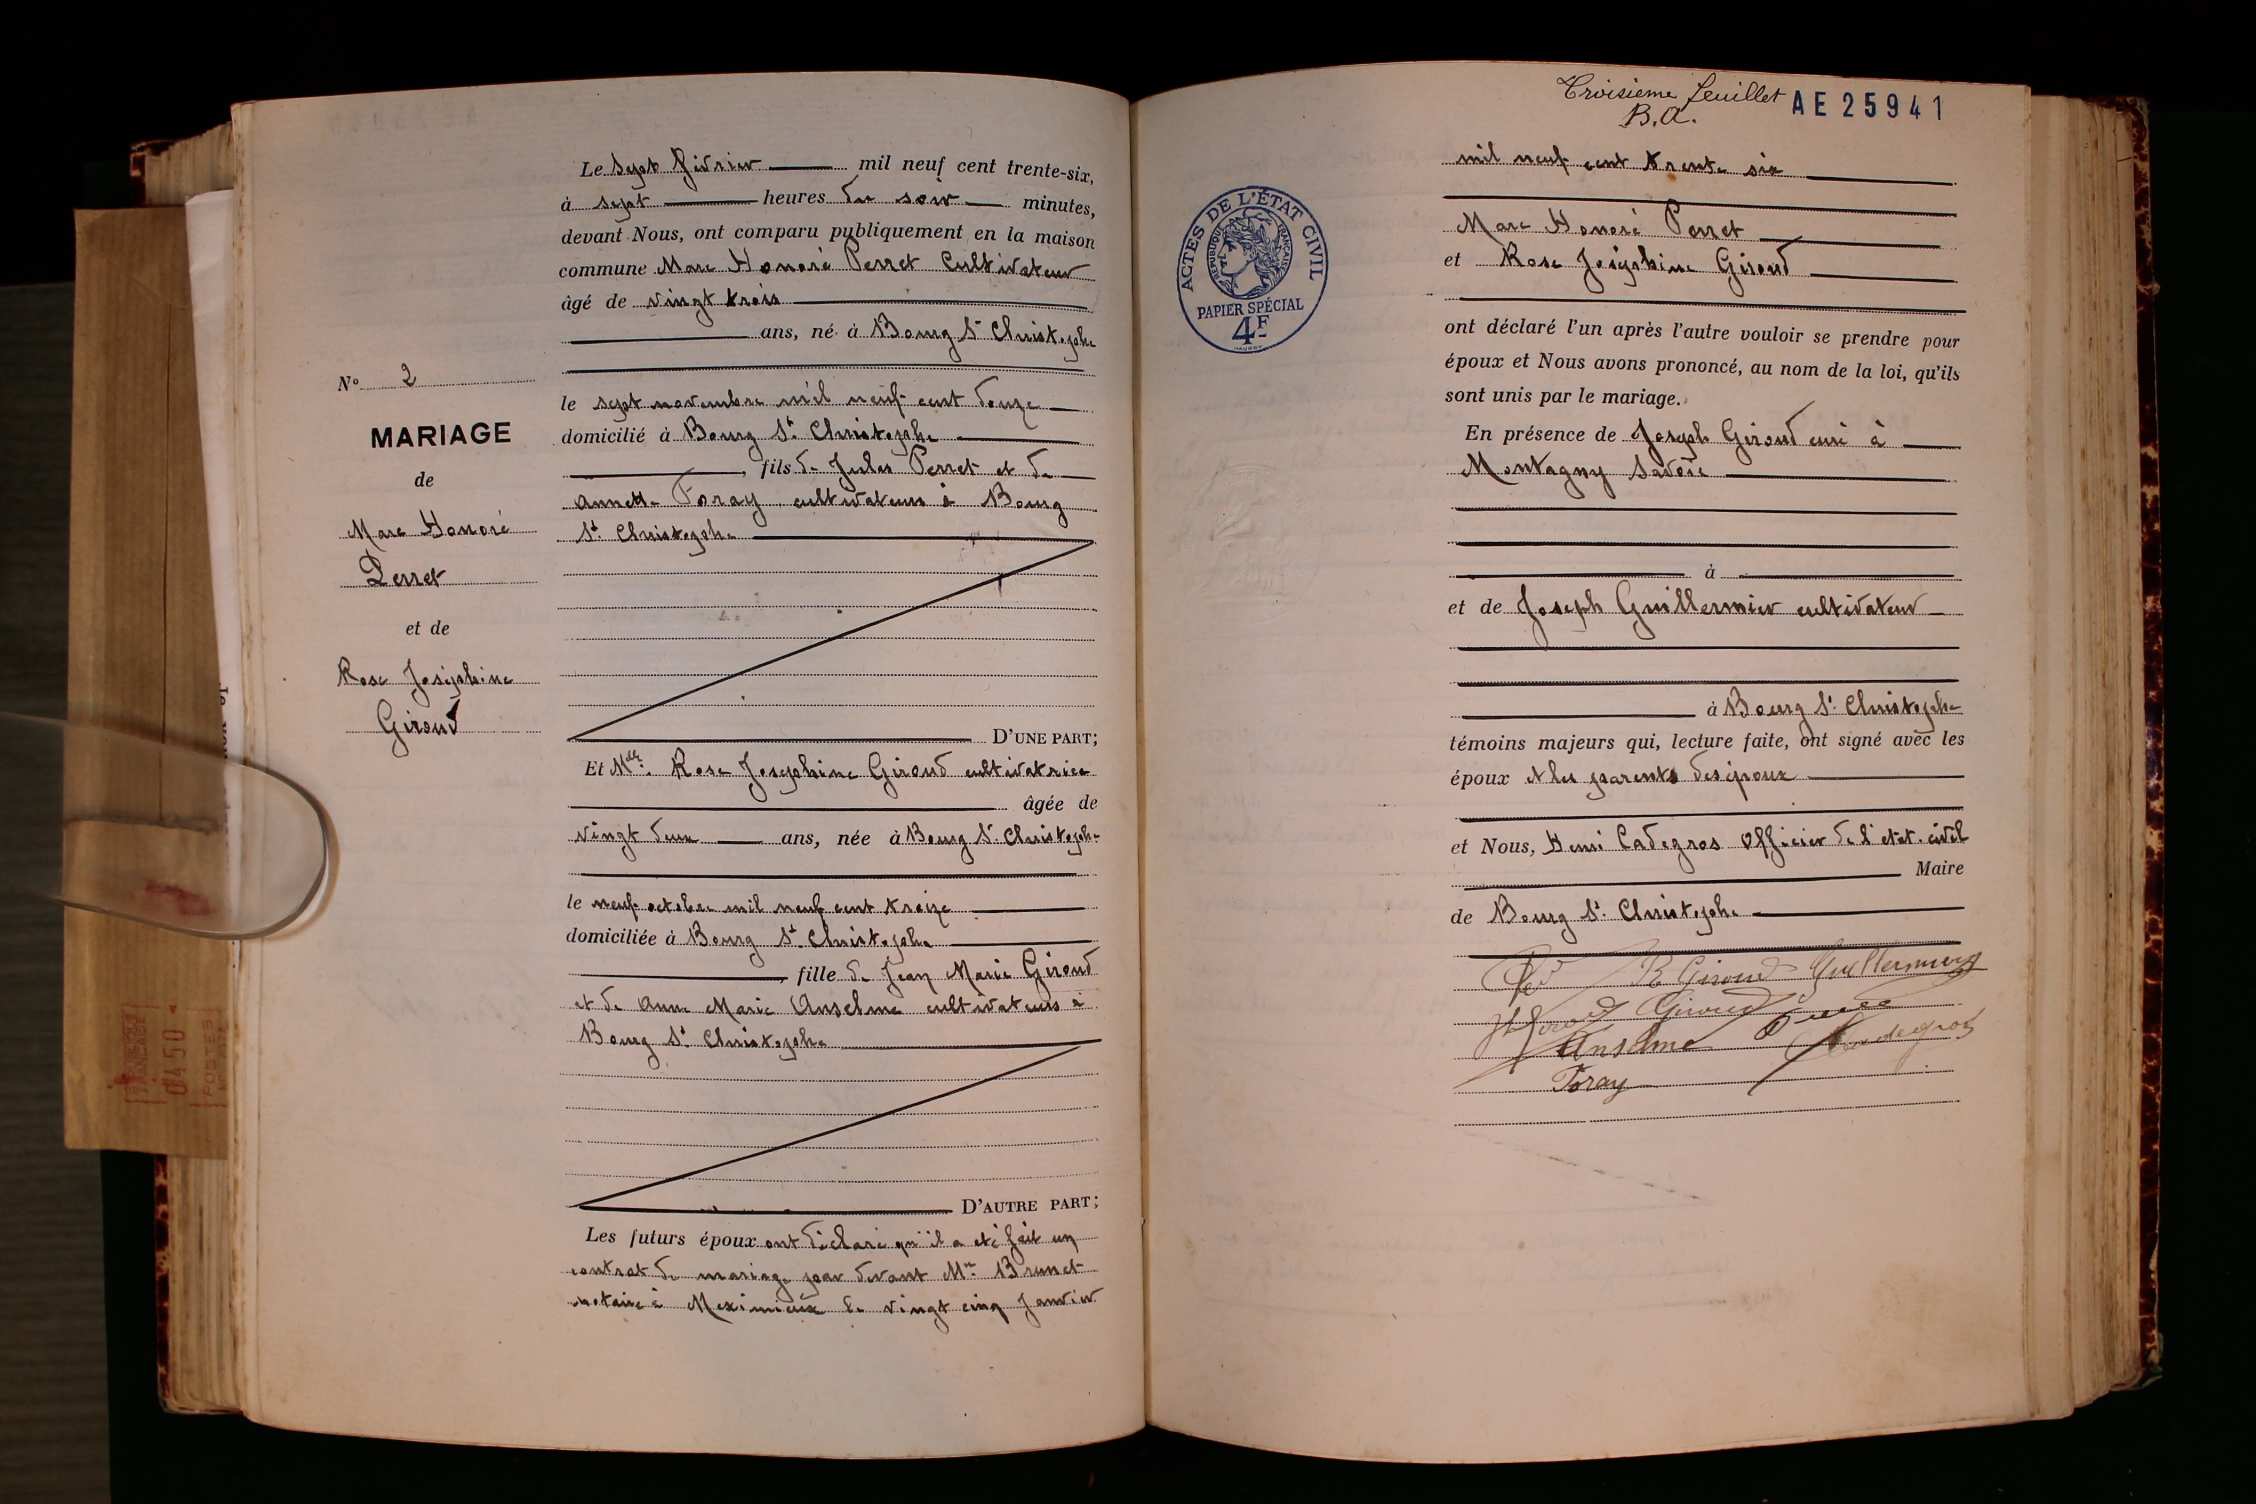 Le sept février mil neuf cent trente-six,
à sept heures du soir minutes,
devant Nous, ont comparu publiquement en la maison
commune Marc Honoré Perret Cultivateur
âgé de vingt trois
ans, né à Bourg St Christophe
le sept novembre mil neuf cent douze
domicilié à Bourg St. Christophe
, fils de Jules Perret et de
Annette Foray cultivateurs à Bourg
St. Christophe
D'UNE PART;
Et Mdlle. Rose Josephine Giroud cultivatrice
âgée de
vingt deux ans, née à Bourg St. Christophe
le neuf octobre mil neuf cent treize
domiciliée à Bourg St. Christophe
, fille de Jean Marie Giroud
et de Anne Marie Anselme cultivateurs à
Bourg St. Christophe
D'AUTRE PART;
Les futurs époux ont déclaré qu'il a été fait un
contrat de mariage par devant Me. Brunet
notaire à Meximieux le vingt cinq Janvier
No 2
MARIAGE
de
Marc Honoré
Perret
et de
Rose Joséphine
Giroud
Troisieme feuillet AE 25941
B.A.
ACTES DE L'ÉTAT CIVIL
RÉPUBLIQUE FRANÇAISE
PAPIER SPÉCIAL
4F
mil neuf cent trente six
Marc Honoré Perret
et Rose Joséphine Giroud
ont déclaré l'un après l'autre vouloir se prendre pour
époux et Nous avons prononcé, au nom de la loi, qu'ils
sont unis par le mariage.
En présence de Joseph Giroud curé à
Montagny Savoie
à
et de Joseph Guillermier cultivateur
à Bourg St. Christophe
témoins majeurs qui, lecture faite, ont signé avec les
époux et les parents des époux
et Nous, Henri Cadegros Officier de l'etat. civil
Maire
de Bourg St. Christophe
R Giroud Guillermier
Giroud
Anselme Cadegros
Foray
0450
POSTES